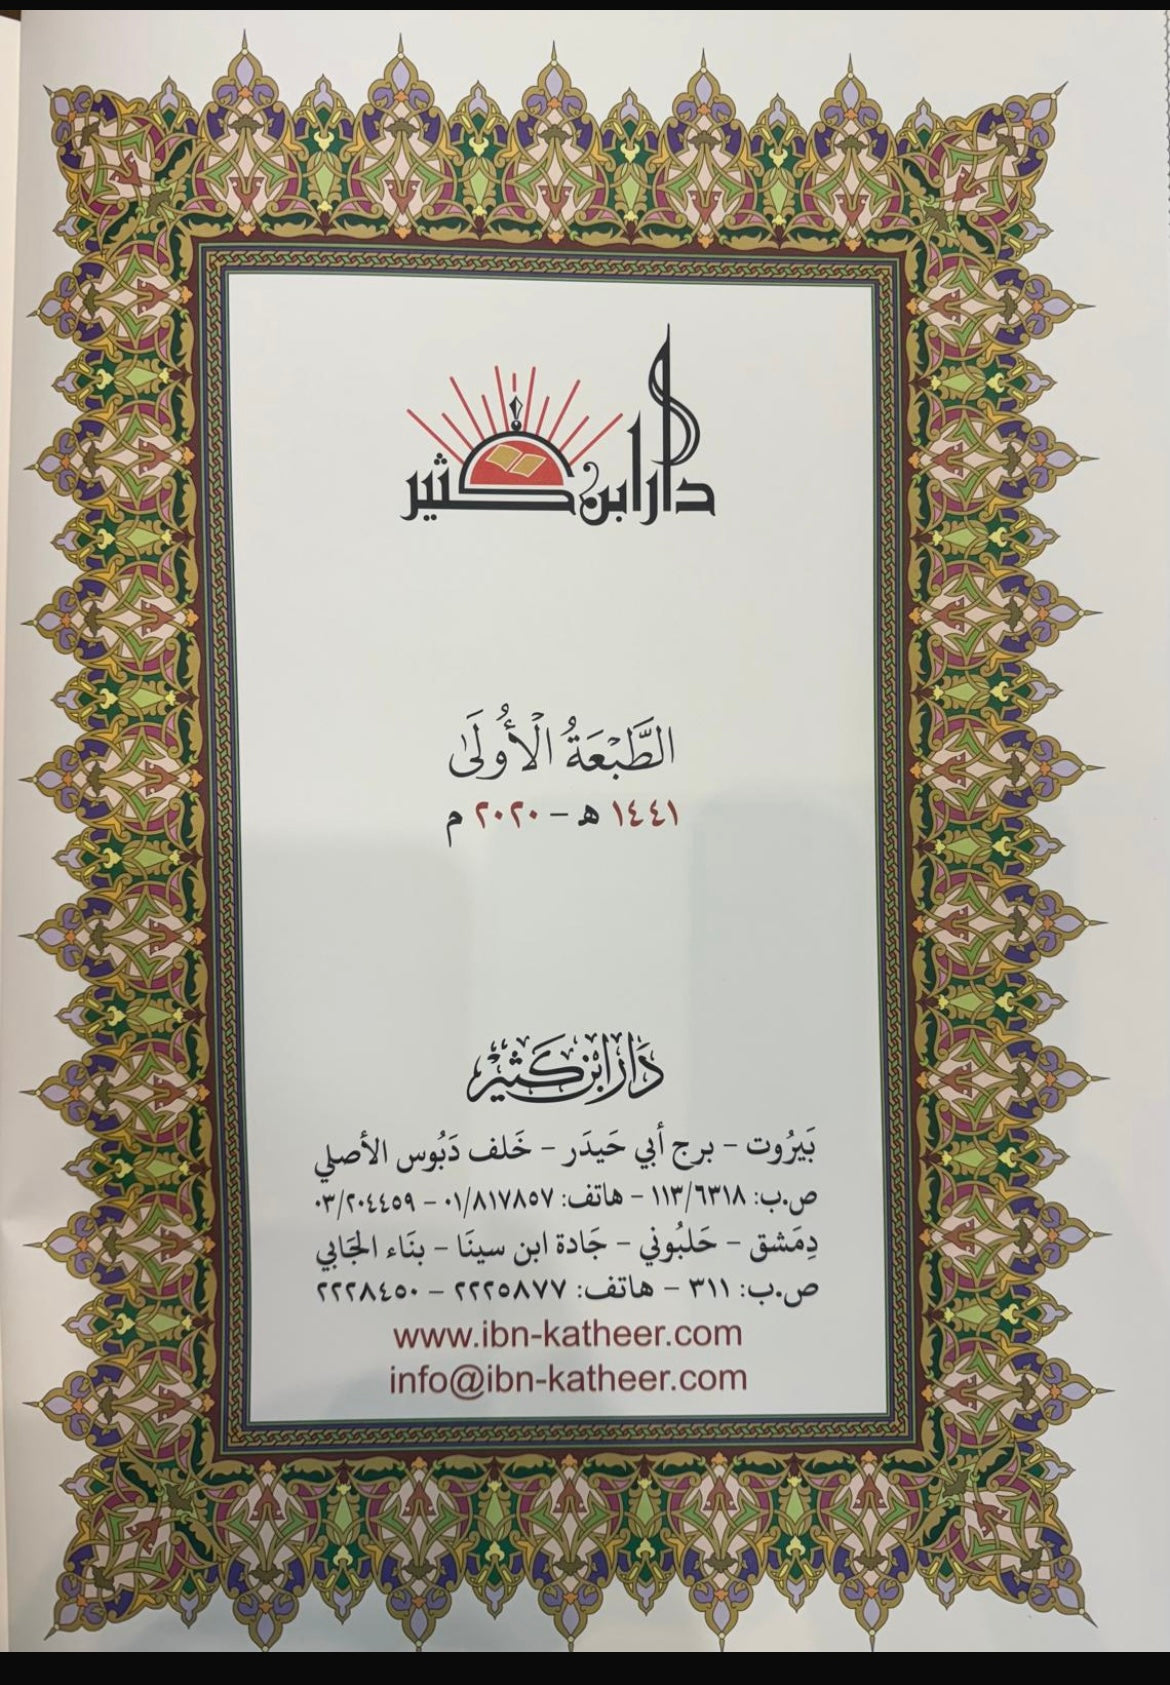 دار ابن كثير
الطَّبْعَةُ الْأُولَىٰ
١٤٤١ هـ - ٢٠٢٠ م
دَار ابْن كَثِيْر
بَيرُوت - برج أبي حَيدَر - خَلف دَبُوس الأصلي
ص.ب: ١١٣/٦٣١٨ - هاتف: ٠١/٨١٧٨٥٧ - ٠٣/٢٠٤٤٥٩
دِمَشق - حَلبُوني - جَادة ابن سينَا - بنَاء الجَابي
ص.ب: ٣١١ - هاتف: ٢٢٢٥٨٧٧ - ٢٢٢٨٤٥٠
www.ibn-katheer.com
info@ibn-katheer.com